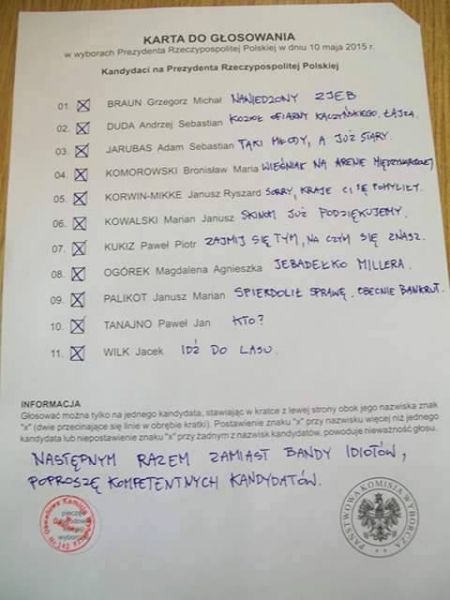 KARTA DO GŁOSOWANIA
w wyborach Prezydenta Rzeczypospolitej Polskiej w dniu 10 maja 2015 r.
Kandydaci na Prezydenta Rzeczypospolitej Polskiej
01. BRAUN Grzegorz Michał NAWIEDZONY ZJEB
02. DUDA Andrzej Sebastian KOZIOŁ OFIARNY KACZYŃSKIEGO. ŁAJZA.
03. JARUBAS Adam Sebastian TAKI MŁODY, A JUŻ STARY.
04. KOMOROWSKI Bronisław Maria WIEŚNIAK NA ARENIE MIĘDZYNARODOWEJ
05. KORWIN-MIKKE Janusz Ryszard SORRY, KRAJE CI SIĘ POMYLIŁY.
06. KOWALSKI Marian Janusz SKINOM JUŻ PODZIĘKUJEMY.
07. KUKIZ Paweł Piotr ZAJMIJ SIĘ TYM, NA CZYM SIĘ ZNASZ.
08. OGÓREK Magdalena Agnieszka JEBADEŁKO MILLERA.
09. PALIKOT Janusz Marian SPIERDOLIŁ SPRAWĘ. OBECNIE BANKRUT.
10. TANAJNO Paweł Jan KTO?
11. WILK Jacek IDŹ DO LASU.
INFORMACJA
Głosować można tylko na jednego kandydata, stawiając w kratce z lewej strony obok jego nazwiska znak
"x" (dwie przecinające się linie w obrębie kratki). Postawienie znaku "x" przy nazwisku więcej niż jednego
kandydata lub niepostawienie znaku "x" przy żadnym z nazwisk kandydatów, powoduje nieważność głosu.
NASTĘPNYM RAZEM ZAMIAST BANDY IDIOTÓW,
POPROSZĘ KOMPETENTNYCH KANDYDATÓW.
PAŃSTWOWA KOMISJA WYBORCZA